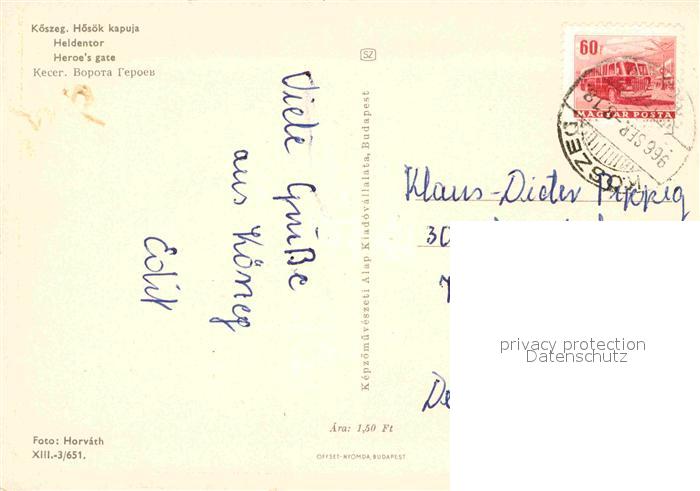 Kőszeg. Hősök kapuja
Heldentor
Heroe's gate
Кесег. Ворота Героев
SZ
60f
MAGYAR POSTA
KŐSZEG
966 SEP
Viele Grüße
aus Kőszeg
Edit
Képzőművészeti Alap Kiadóvállalata, Budapest
Klaus-Dieter
30
privacy protection
Datenschutz
Ára: 1,50 Ft
Foto: Horváth
XIII.-3/651.
OFFSET-NYOMDA, BUDAPEST